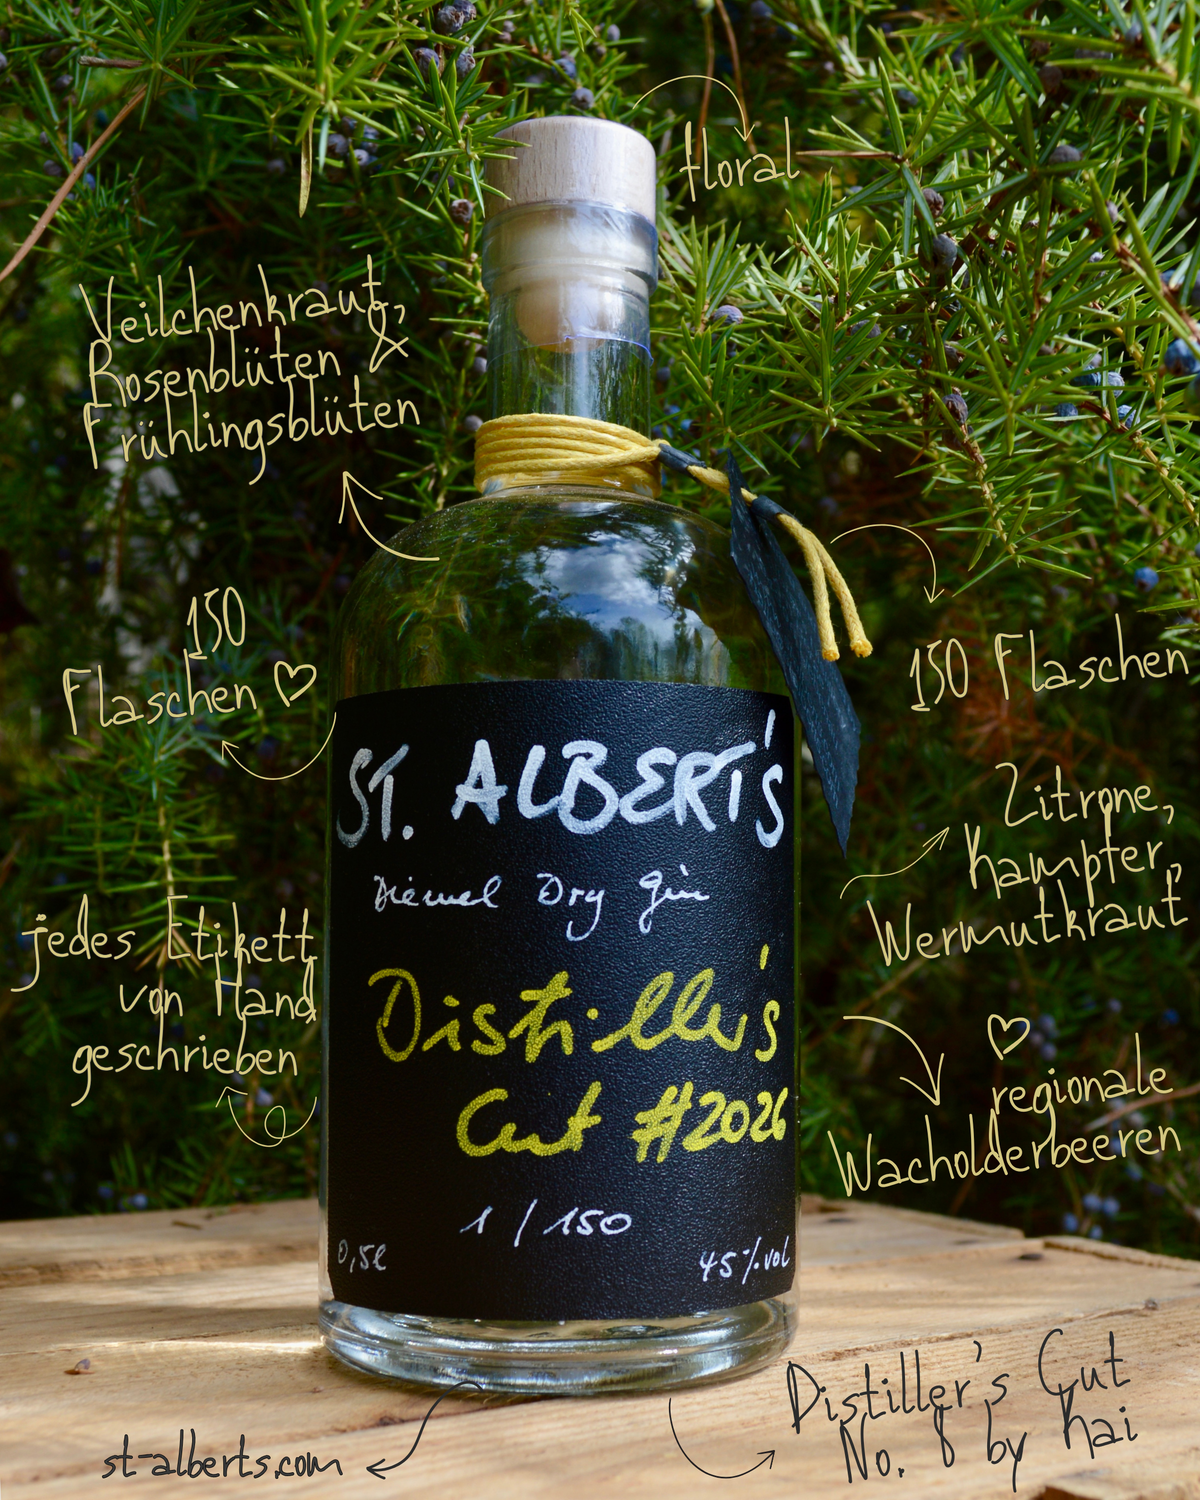 floral
Veilchenkraut,
Rosenblüten &
Frühlingsblüten
150
Flaschen ♡
150 Flaschen
ST. ALBERT'S
Diemel Dry Gin
Zitrone,
Kampfer,
Wermutkraut
jedes Etikett
von Hand
geschrieben
Distiller's
Cut #2026
♡
regionale
Wacholderbeeren
1/150
0,5l
45%vol
Distiller's Cut
No. 8 by Kai
st-alberts.com